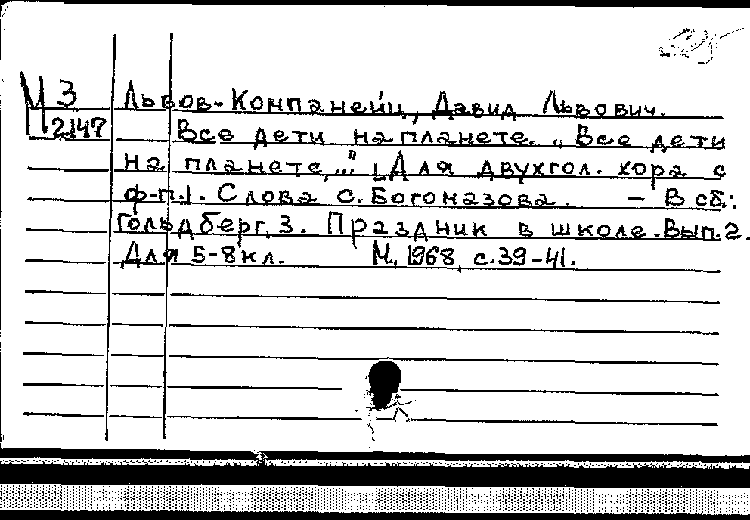 М 3
2147
Львов-Компанеец, Давид Львович.
Все дети на планете. „Все дети
на планете,..." [Для двухгол. хора с
ф-п.]. Слова С. Богомазова. – В сб.:
Гольдберг, З. Праздник в школе. Вып. 2.
Для 5-8 кл. М., 1968, с. 39-41.